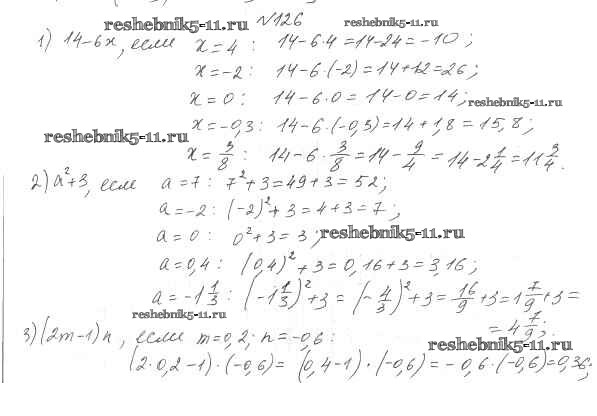 reshebnik5-11.ru №126 reshebnik5-11.ru
1) 14-6x, если x=4: 14-6·4=14-24=-10;
x=-2: 14-6·(-2)=14+12=26;
x=0: 14-6·0=14-0=14; reshebnik5-11.ru
x=-0,3: 14-6·(-0,3)=14+1,8=15,8;
reshebnik5-11.ru
x=3/8: 14-6·3/8=14-9/4=14-2 1/4=11 3/4.
2) a²+3, если a=7: 7²+3=49+3=52;
a=-2: (-2)²+3=4+3=7;
a=0: 0²+3=3; reshebnik5-11.ru
a=0,4: (0,4)²+3=0,16+3=3,16;
a=-1 1/3: (-1 1/3)²+3=(-4/3)²+3=16/9+3=1 7/9+3=
reshebnik5-11.ru
=4 7/9;
3) (2m-1)n, если m=0,2; n=-0,6:
reshebnik5-11.ru
(2·0,2-1)·(-0,6)=(0,4-1)·(-0,6)=-0,6·(-0,6)=0,36;